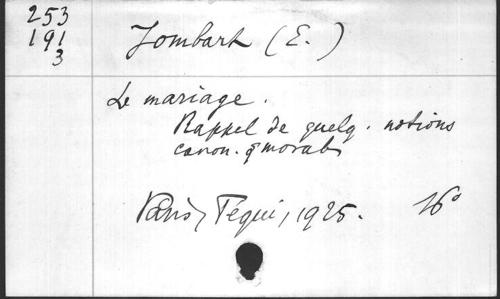 253
191
3
Jombart (E.)
Le mariage.
Rappel de quelq. notions
canon. & morales
Paris, Téqui, 1925. 16°